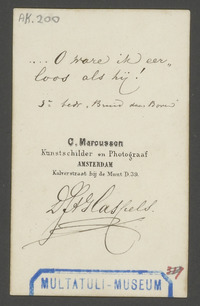 AK.200
.... O ware ik eer„
loos als hij!
C. Marcusson
Kunstschilder en Photograaf
AMSTERDAM
Kalverstraat bij de Munt D.39.
Haspels
MULTATULI-MUSEUM